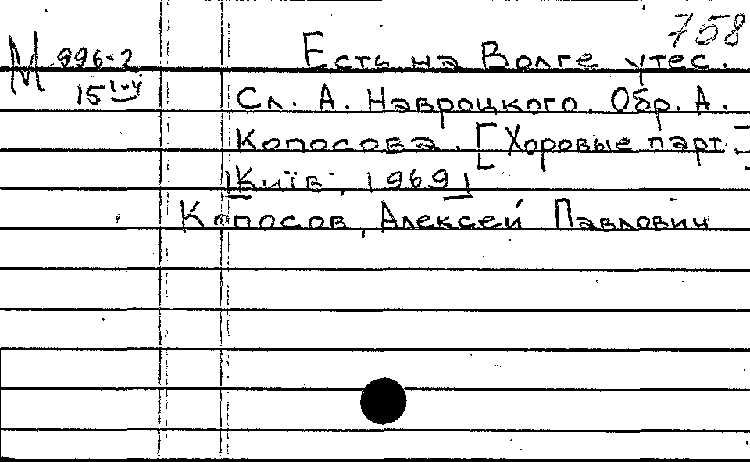 758
М 996-2 Есть на Волге утес.
15 1-4 Сл. А. Навроцкого. Обр. А.
Копосова. [Хоровые парт.]
[Київ, 1969]
Копосов, Алексей Павлович